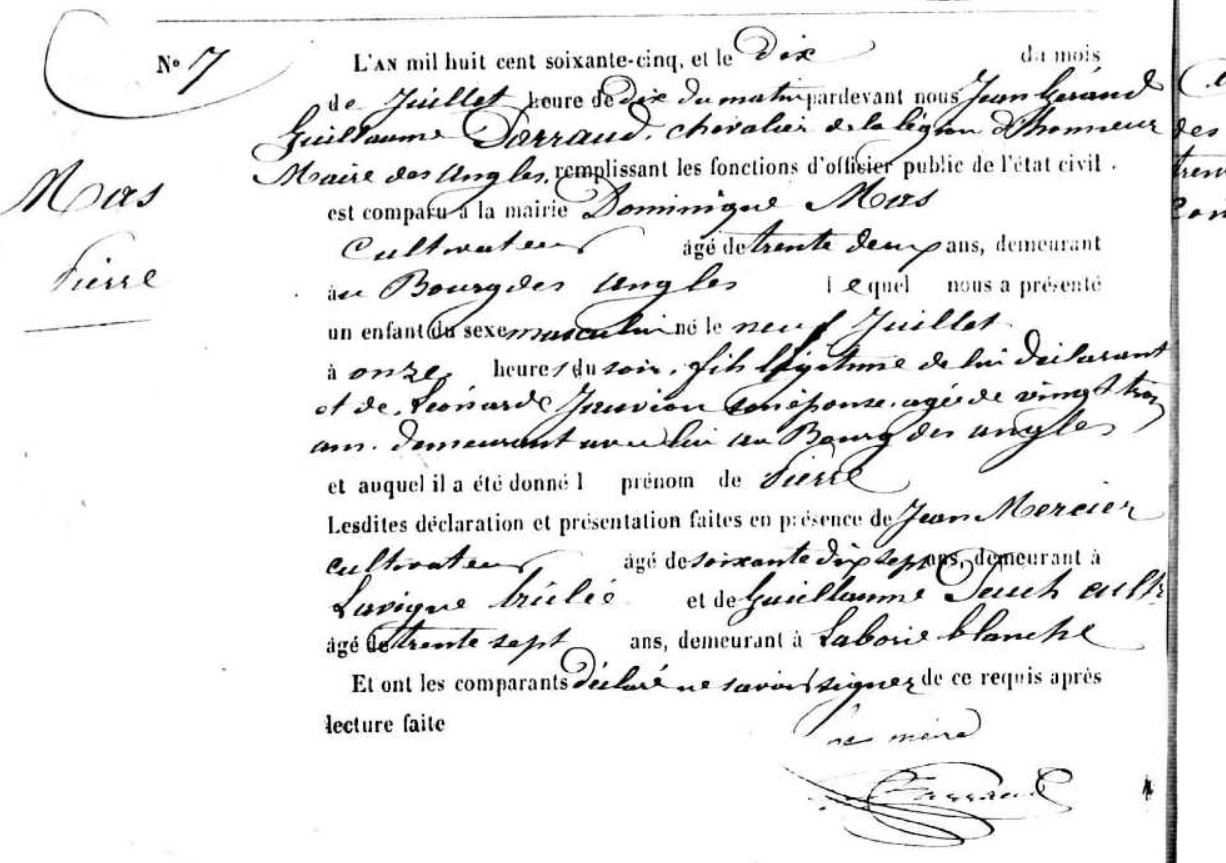 N° 7
Mas
Pierre
L'AN mil huit cent soixante-cinq, et le dix du mois
de Juillet heure de dix du matin pardevant nous Jean Gérand
Guillaume Darraud, chevalier de la légion d'honneur
Maire des Angles, remplissant les fonctions d'officier public de l'état civil.
est comparu à la mairie Dominique Mas
Cultivateur âgé de trente deux ans, demeurant
au Bourg des Angles lequel nous a présenté
un enfant du sexe masculin né le neuf Juillet
à onze heures du soir, fils légitime de lui déclarant
et de Léonarde son épouse, agée de vingt trois
ans. demeurant avec lui au Bourg des angles
et auquel il a été donné l prénom de Pierre
Lesdites déclaration et présentation faites en présence de Jean Mercier
cultivateur âgé de soixante dix sept ans, demeurant à
Lavigne brûlée et de Guillaume cultr
âgé de trente sept ans, demeurant à Laborie blanche
Et ont les comparants déclaré ne savoir signer de ce requis après
lecture faite
le maire